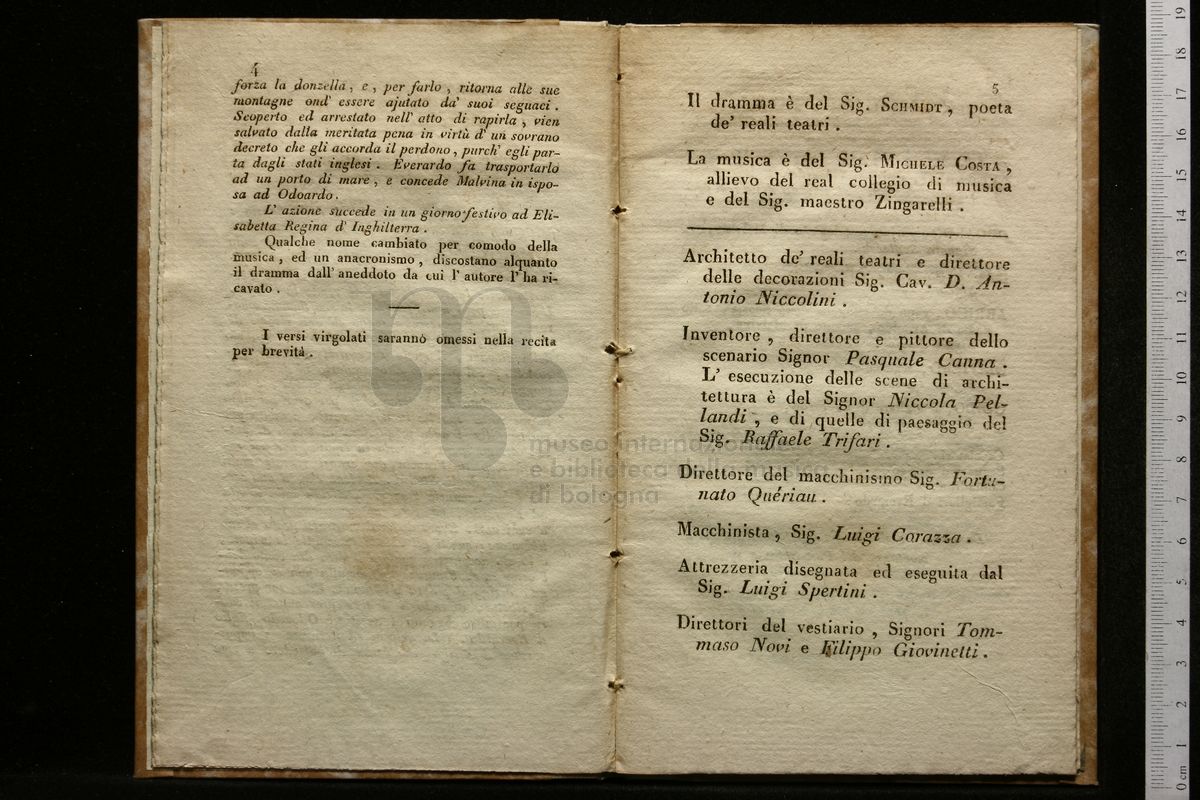 4
forza la donzella , e , per farlo , ritorna alle sue
montagne ond' essere ajutato da' suoi seguaci .
Scoperto ed arrestato nell' atto di rapirla , vien
salvato dalla meritata pena in virtù d' un sovrano
decreto che gli accorda il perdono , purch' egli par-
ta dagli stati inglesi . Everardo fa trasportarlo
ad un porto di mare , e concede Malvina in ispo-
sa ad Odoardo .
L' azione succede in un giorno festivo ad Eli-
sabetta Regina d' Inghilterra .
Qualche nome cambiato per comodo della
musica , ed un anacronismo , discostano alquanto
il dramma dall' aneddoto da cui l' autore l' ha ri-
cavato .
I versi virgolati saranno omessi nella recita
per brevità .
5
Il dramma è del Sig. SCHMIDT , poeta
de' reali teatri .
La musica è del Sig. MICHELE COSTA ,
allievo del real collegio di musica
e del Sig. maestro Zingarelli .
Architetto de' reali teatri e direttore
delle decorazioni Sig. Cav. D. An-
tonio Niccolini .
Inventore , direttore e pittore dello
scenario Signor Pasquale Canna .
L' esecuzione delle scene di archi-
tettura è del Signor Niccola Pel-
landi , e di quelle di paesaggio del
Sig. Raffaele Trifari .
Direttore del macchinismo Sig. Fortu-
nato Quériau .
Macchinista , Sig. Luigi Corazza .
Attrezzeria disegnata ed eseguita dal
Sig. Luigi Spertini .
Direttori del vestiario , Signori Tom-
maso Novi e Filippo Giovinetti .
museo internazionale
e biblioteca della musica
di bologna
0 cm 1 2 3 4 5 6 7 8 9 10 11 12 13 14 15 16 17 18 19